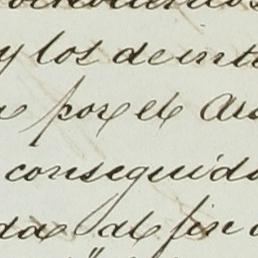 y los de inte
por el Ar
conseguid
da al fin